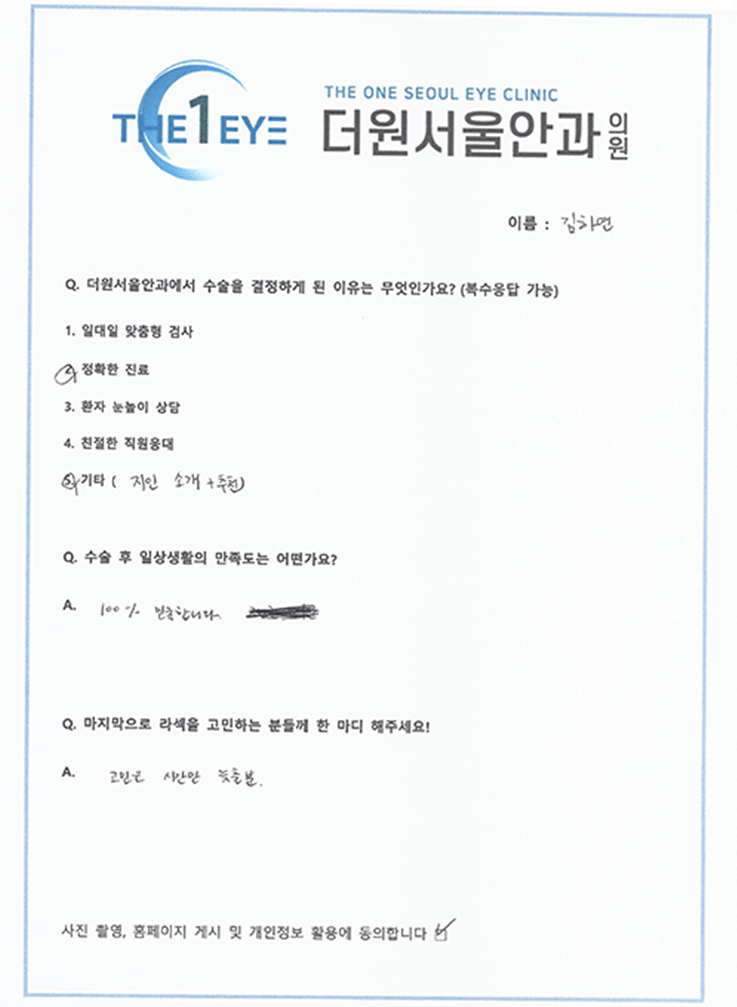 THE 1 EYE
THE ONE SEOUL EYE CLINIC
더원서울안과의원
이름 : 김하연
Q. 더원서울안과에서 수술을 결정하게 된 이유는 무엇인가요? (복수응답 가능)
1. 일대일 맞춤형 검사
2. 정확한 진료
3. 환자 눈높이 상담
4. 친절한 직원응대
5. 기타 ( 지인 소개 + 추천)
Q. 수술 후 일상생활의 만족도는 어떤가요?
A. 100% 만족합니다.
Q. 마지막으로 라섹을 고민하는 분들께 한 마디 해주세요!
A. 고민은 시간만 늦출뿐.
사진 촬영, 홈페이지 게시 및 개인정보 활용에 동의합니다